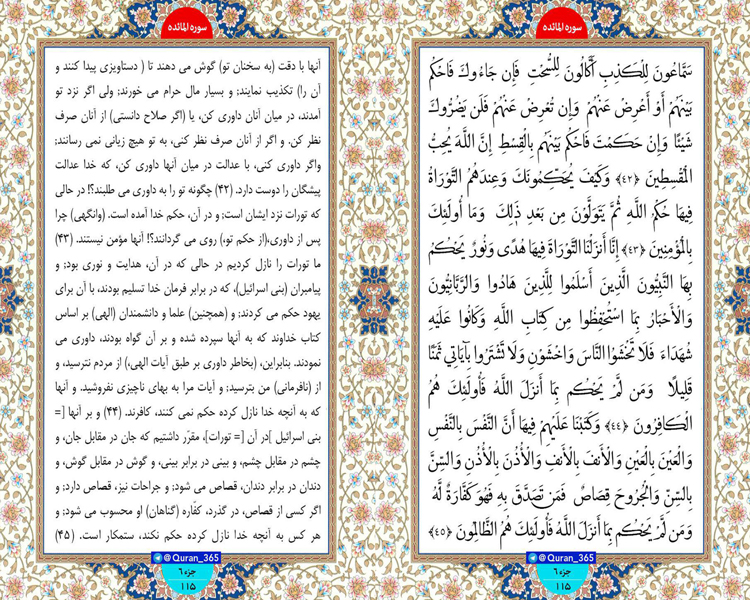 سوره المائده
سَمَّاعُونَ لِلْكَذِبِ أَكَّالُونَ لِلسُّحْتِ فَإِن جَاءُوكَ فَاحْكُم
بَيْنَهُمْ أَوْ أَعْرِضْ عَنْهُمْ وَإِن تُعْرِضْ عَنْهُمْ فَلَن يَضُرُّوكَ
شَيْئًا وَإِنْ حَكَمْتَ فَاحْكُم بَيْنَهُم بِالْقِسْطِ إِنَّ اللَّهَ يُحِبُّ
الْمُقْسِطِينَ ﴿۴۲﴾ وَكَيْفَ يُحَكِّمُونَكَ وَعِندَهُمُ التَّوْرَاةُ
فِيهَا حُكْمُ اللَّهِ ثُمَّ يَتَوَلَّوْنَ مِن بَعْدِ ذَلِكَ وَمَا أُولَئِكَ
بِالْمُؤْمِنِينَ ﴿۴۳﴾ إِنَّا أَنزَلْنَا التَّوْرَاةَ فِيهَا هُدًى وَنُورٌ يَحْكُمُ
بِهَا النَّبِيُّونَ الَّذِينَ أَسْلَمُوا لِلَّذِينَ هَادُوا وَالرَّبَّانِيُّونَ
وَالْأَحْبَارُ بِمَا اسْتُحْفِظُوا مِن كِتَابِ اللَّهِ وَكَانُوا عَلَيْهِ
شُهَدَاءَ فَلَا تَخْشَوُا النَّاسَ وَاخْشَوْنِ وَلَا تَشْتَرُوا بِآيَاتِي ثَمَنًا
قَلِيلًا وَمَن لَّمْ يَحْكُم بِمَا أَنزَلَ اللَّهُ فَأُولَئِكَ هُمُ
الْكَافِرُونَ ﴿۴۴﴾ وَكَتَبْنَا عَلَيْهِمْ فِيهَا أَنَّ النَّفْسَ بِالنَّفْسِ
وَالْعَيْنَ بِالْعَيْنِ وَالْأَنفَ بِالْأَنفِ وَالْأُذُنَ بِالْأُذُنِ وَالسِّنَّ
بِالسِّنِّ وَالْجُرُوحَ قِصَاصٌ فَمَن تَصَدَّقَ بِهِ فَهُوَ كَفَّارَةٌ لَّهُ
وَمَن لَّمْ يَحْكُم بِمَا أَنزَلَ اللَّهُ فَأُولَئِكَ هُمُ الظَّالِمُونَ ﴿۴۵﴾
@Quran_365
جزء ۶
۱۱۵
سوره المائده
آنها با دقت (به سخنان تو) گوش می دهند تا ( دستاویزی پیدا کنند و
آن را) تکذیب نمایند; و بسیار مال حرام می خورند; ولی اگر نزد تو
آمدند، در میان آنان داوری کن، یا (اگر صلاح دانستی) از آنان صرف
نظر کن. و اگر از آنان صرف نظر کنی، به تو هیچ زیانی نمی رسانند;
واگر داوری کنی، با عدالت در میان آنها داوری کن، که خدا عدالت
پیشگان را دوست دارد. (۴۲) چگونه تو را به داوری می طلبند؟! در حالی
که تورات نزد ایشان است; و در آن، حکم خدا آمده است. (وانگهی) چرا
پس از داوری،(از حکم تو،) روی می گردانند؟! آنها مؤمن نیستند. (۴۳)
ما تورات را نازل کردیم در حالی که در آن، هدایت و نوری بود; و
پیامبران (بنی اسرائیل)، که در برابر فرمان خدا تسلیم بودند، با آن برای
یهود حکم می کردند; و (همچنین) علما و دانشمندان (الهی) بر اساس
کتاب خداوند که به آنها سپرده شده و بر آن گواه بودند، داوری می
نمودند. بنابراین، (بخاطر داوری بر طبق آیات الهی،) از مردم نترسید، و
از (نافرمانی) من بترسید; و آیات مرا به بهای ناچیزی نفروشید. و آنها
که به آنچه خدا نازل کرده حکم نمی کنند، کافرند. (۴۴) و بر آنها [=
بنی اسرائیل ]در آن [= تورات]، مقرّر داشتیم که جان در مقابل جان، و
چشم در مقابل چشم، و بینی در برابر بینی، و گوش در مقابل گوش، و
دندان در برابر دندان، قصاص می شود; و جراحات نیز، قصاص دارد; و
اگر کسی از قصاص، در گذرد، کفّاره (گناهان) او محسوب می شود; و
هر کس به آنچه خدا نازل کرده حکم نکند، ستمکار است. (۴۵)
@Quran_365
جزء ۶
۱۱۵